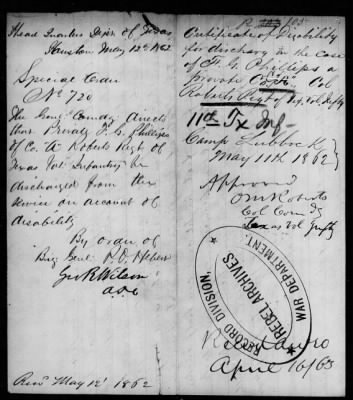 Head Quarters Dept of Texas
Houston May 12th 1862
Special Order
No 720
The Genl Comdg directs
that Private F. G. Phillips
of Co. A Roberts Regt of
Texas Vol Infantry be
discharged from the
service on account of
disability
By order of
Brig Genl P. O. Hebert
Geo R Wilson
Recd May 12' 1862
Certificate of Disability
for discharge in the case
of F. G. Phillips a
Private Col
Roberts Regt of Tex Vol Infty
11th Tx Inf
Camp Lubbock
May 11th 1862
Approved
O M Roberts
Col Comdg
Texas Vol Infty
RECORD DIVISION
REBEL ARCHIVES
WAR DEPARTMENT
April 16/63